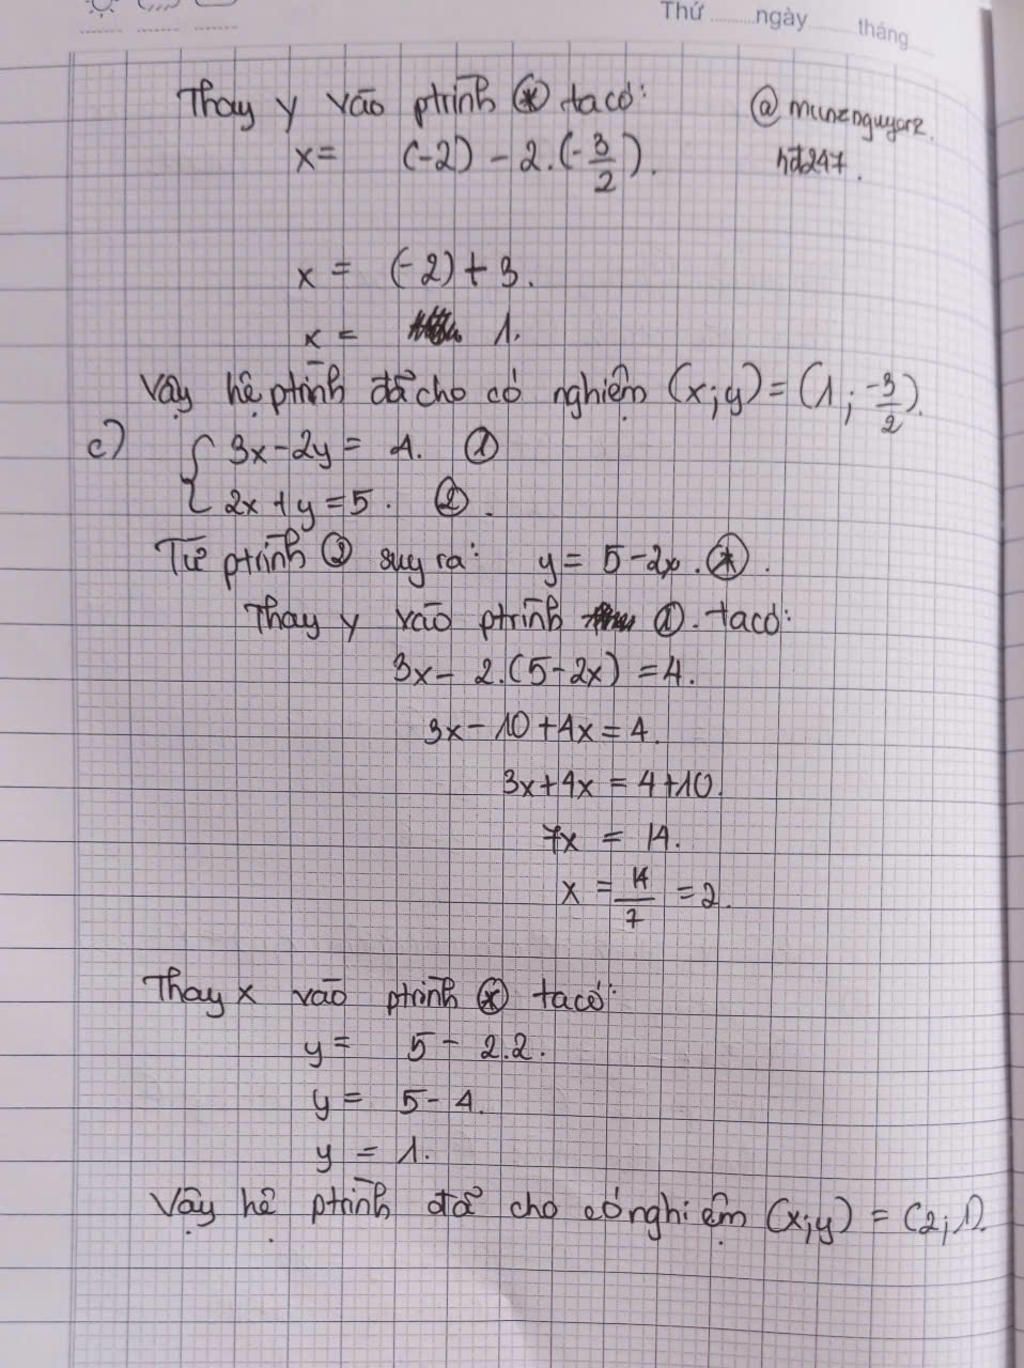 Thứ ........ngày ........ tháng ......
Thay y vào ptrình (*) ta có:
@
hđ247.
x = (-2) - 2.(-3/2).
x = (-2) + 3.
x = 1.
Vậy hệ ptrình đã cho có nghiệm (x;y) = (1; -3/2).
c) { 3x - 2y = 4. ①
2x + y = 5. ②.
Từ ptrình ② suy ra: y = 5 - 2x. (*).
Thay y vào ptrình ①. ta có:
3x - 2.(5 - 2x) = 4.
3x - 10 + 4x = 4.
3x + 4x = 4 + 10.
7x = 14.
x = 14/7 = 2.
Thay x vào ptrình (*) ta có:
y = 5 - 2.2.
y = 5 - 4.
y = 1.
Vậy hệ ptrình đã cho có nghiệm (x;y) = (2;1).